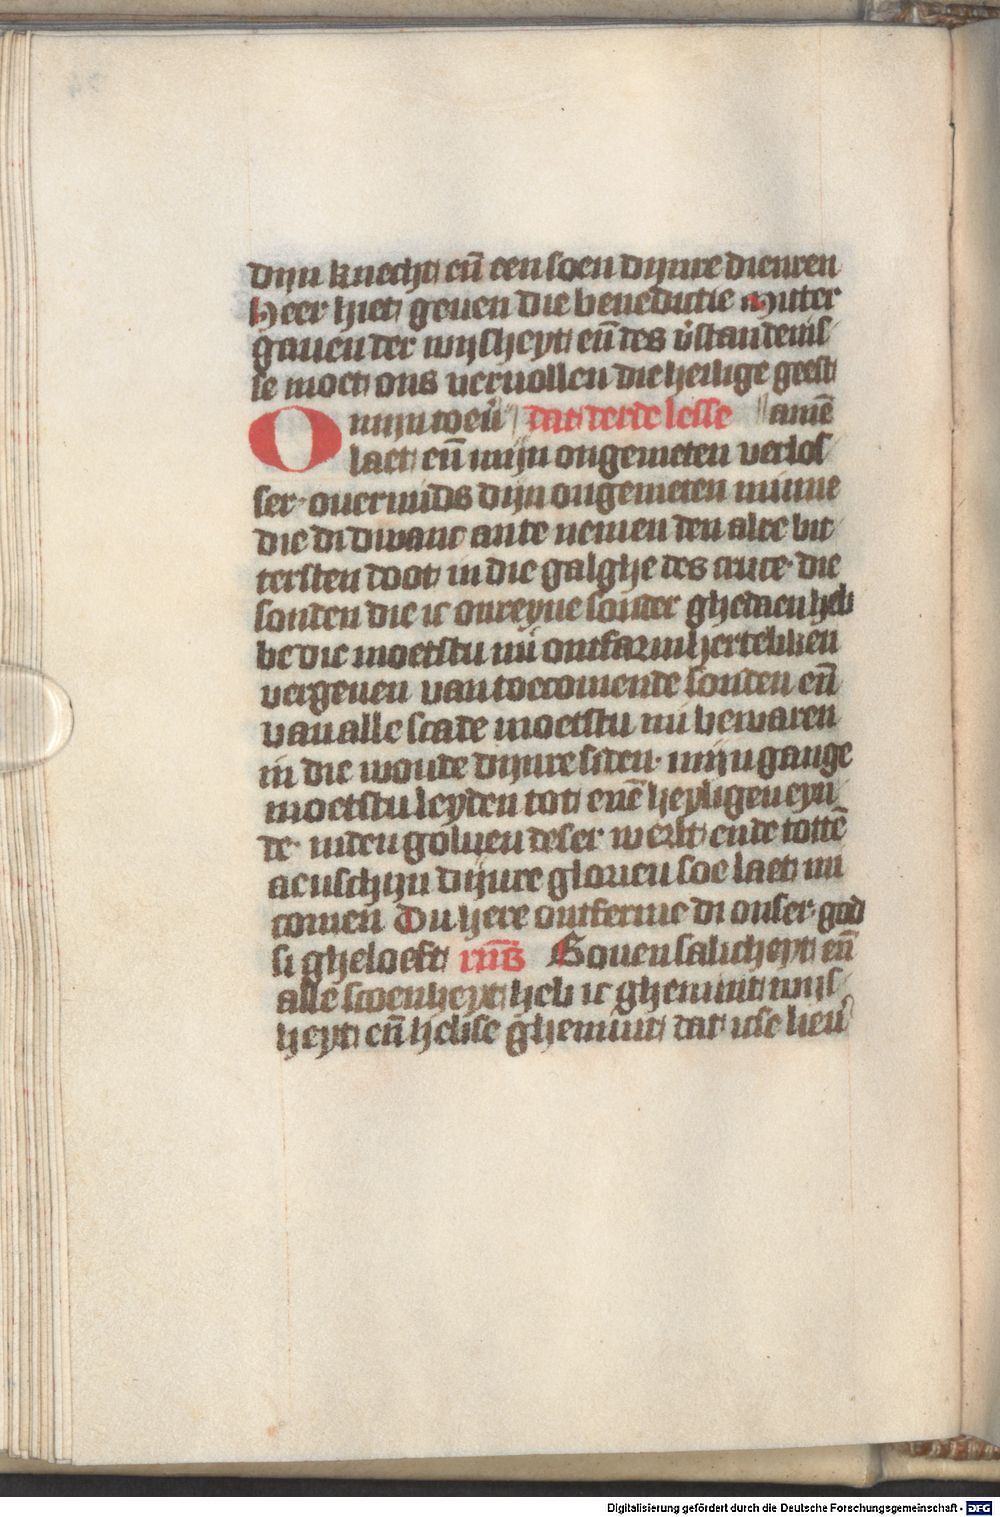 dijn knecht en̄ een soen dijnre dienren
Heer hiet geuen die benedictie Mitter
gauen der wijsheyt en̄ des v̓standenis
se moet ons veruollen die heilige geest
O mijn toeu̓ dat derde lesse amē
laet en̄ mijn ongemeten verlos
ser· ouermids dijn ongemeten minne
die di dwanc ante nemen den alre bit
tersten doot in die galghe des cruce· die
sonden die ic onreyne sonder ghedaen heb
be die moetstu mi ontfarmhertelikken
vergeuen van toecomende sonden en̄
van alle scade moetstu mi bewaren
in die wonde dijnre siden· mijn gange
moetstu leyden tot enē heyligen eyn
de· uiten goluen deser werlt ende tottē
aenschijn dijnre glorien soe laet mi
comen Du here ontferme di onser· god
si gheloeft Bouen salicheyt en̄
alle scoenheyt heb ic ghemint wijs
heyt en̄ hebse ghemint dat icse lieu
Digitalisierung gefördert durch die Deutsche Forschungsgemeinschaft - DFG